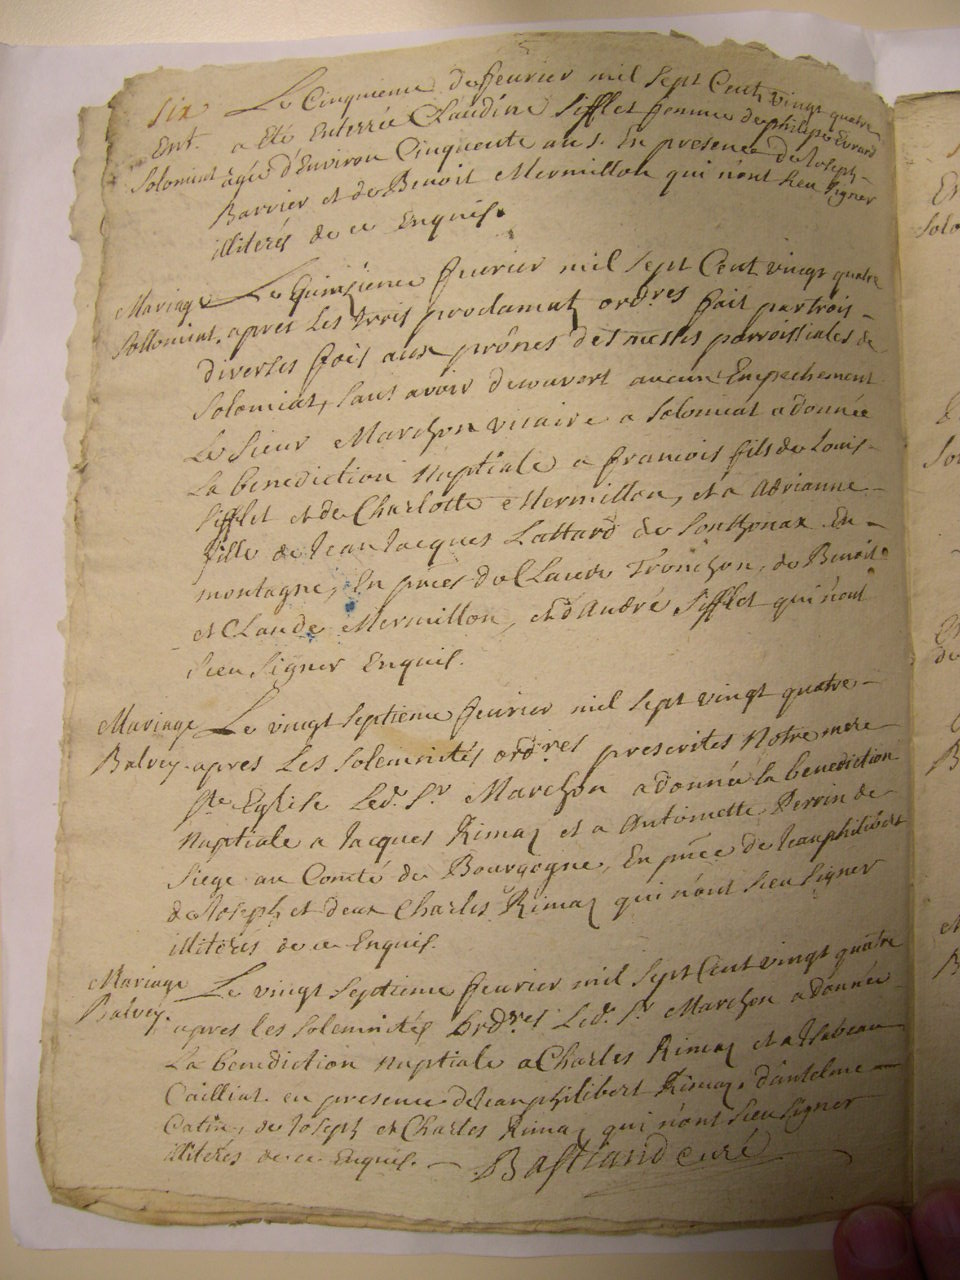 Six Le Cinquieme de feurier mil sept Cent vingt quatre
Ent. a été Enterrée Claudine Sifflet femme de philipe Evrard
Solomiat agée d'Environ Cinquente ans. En presence de Joseph
Barrier et de Benoit Mermillon qui n'ont sceu signer
illiterés de ce Enquis.
Mariage Le Quinzieme feurier mil sept Cent vingt quatre
Sollomiat. apres Les trois proclamat. ordres fait par trois
diverses fois aux prônes des messes parroissiales de
Solomiat, sans avoir decouvert aucun Empechement
Le Sieur Marchon vicaire a Solomiat a donnée
La benediction nuptiale a francois fils de Louis
Sifflet et de Charlotte Mermillon, et a Adrianne
fille de Jean Jacques Lattard de Sonthonax En
montagne, En pnces de Claude Tronchon, de Benoit
et Claude Mermillon, et d'André Sifflet qui n'ont
sceu signer Enquis.
Mariage Le vingt septieme feurier mil sept vingt quatre
Balvey. apres Les Solemnités ordres prescrites Notre mere
Ste Eglise Led. Sr Marchon a donnée la benediction
Nuptiale a Jacques Rimaz et a Antoinette Perrin de
Siege au Comté de Bourgogne, En pnce de Jeanphilibert
de Joseph et deux Charles Rimaz qui n'ont sceu signer
illiterés de ce Enquis.
Mariage Le vingt septieme feurier mil sept Cent vingt quatre
Balvey. apres les Solemnités ordres Led. Sr Marchon a donnée
La benediction nuptiale a Charles Rimaz et a Isabeau
Cailliat. en presence de Jeanphilibert Rimaz, d'antelme
Catin, de Joseph et Charles Rimaz qui n'ont sceu signer
illiterés de ce Enquis. Bastiand curé